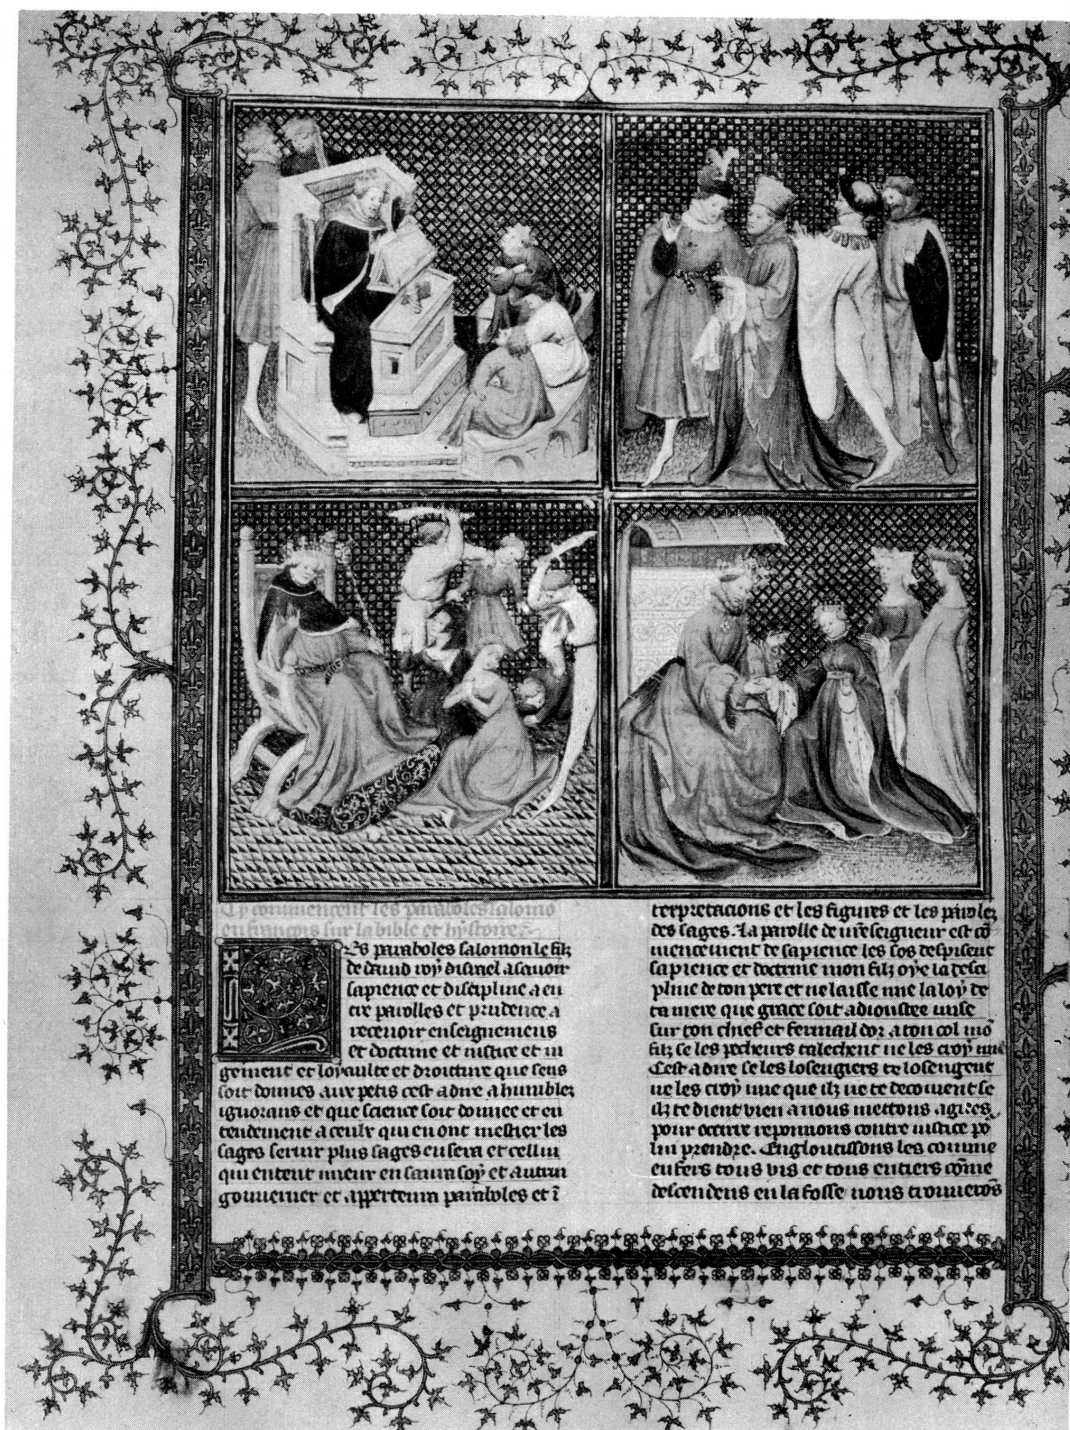 Cy commencent les paraboles salomo
en francois sur la bible et hystoires
Les paraboles salomon le filz
de dauid roy disrael a scauoir
sapience et discipline a en
tre parolles et prudence a
receuoir enseignemens
et doctrine et iustice et iu
gement et loyaulte et droitture que sens
soit donnes aux petis cest a dire a humblez
ignorans et que science soit donnee et en
tendement a ceulx qui en ont mestier les
sages seruir plus sages en sera et cellui
qui entent mieux en saura soy et autrui
gouuerner et appertenra paraboles et i
terpretacions et les figures et les parolez
des sages. La parolle de nreseigneur est co
mencement de sapience les sos despisent
sapience et doctrine mon filz oye la desci
pline de ton pere et ne laisse mie la loy de
ta mere que grace soit adioustee
sur ton chief et fermail dor a ton col mo
filz se les pecheurs talechent ne les croy mie
Cest a dire se les losengiers te losengent
ne les croy mie que ilz ne te decoiuent se
ilz te dient vien a nous mettons agues
pour occire reponnons contre iustice po
lui prendre. Engloutissons les comme
enfers tous vis et tous entiers come
descendens en la fosse nous trouueros